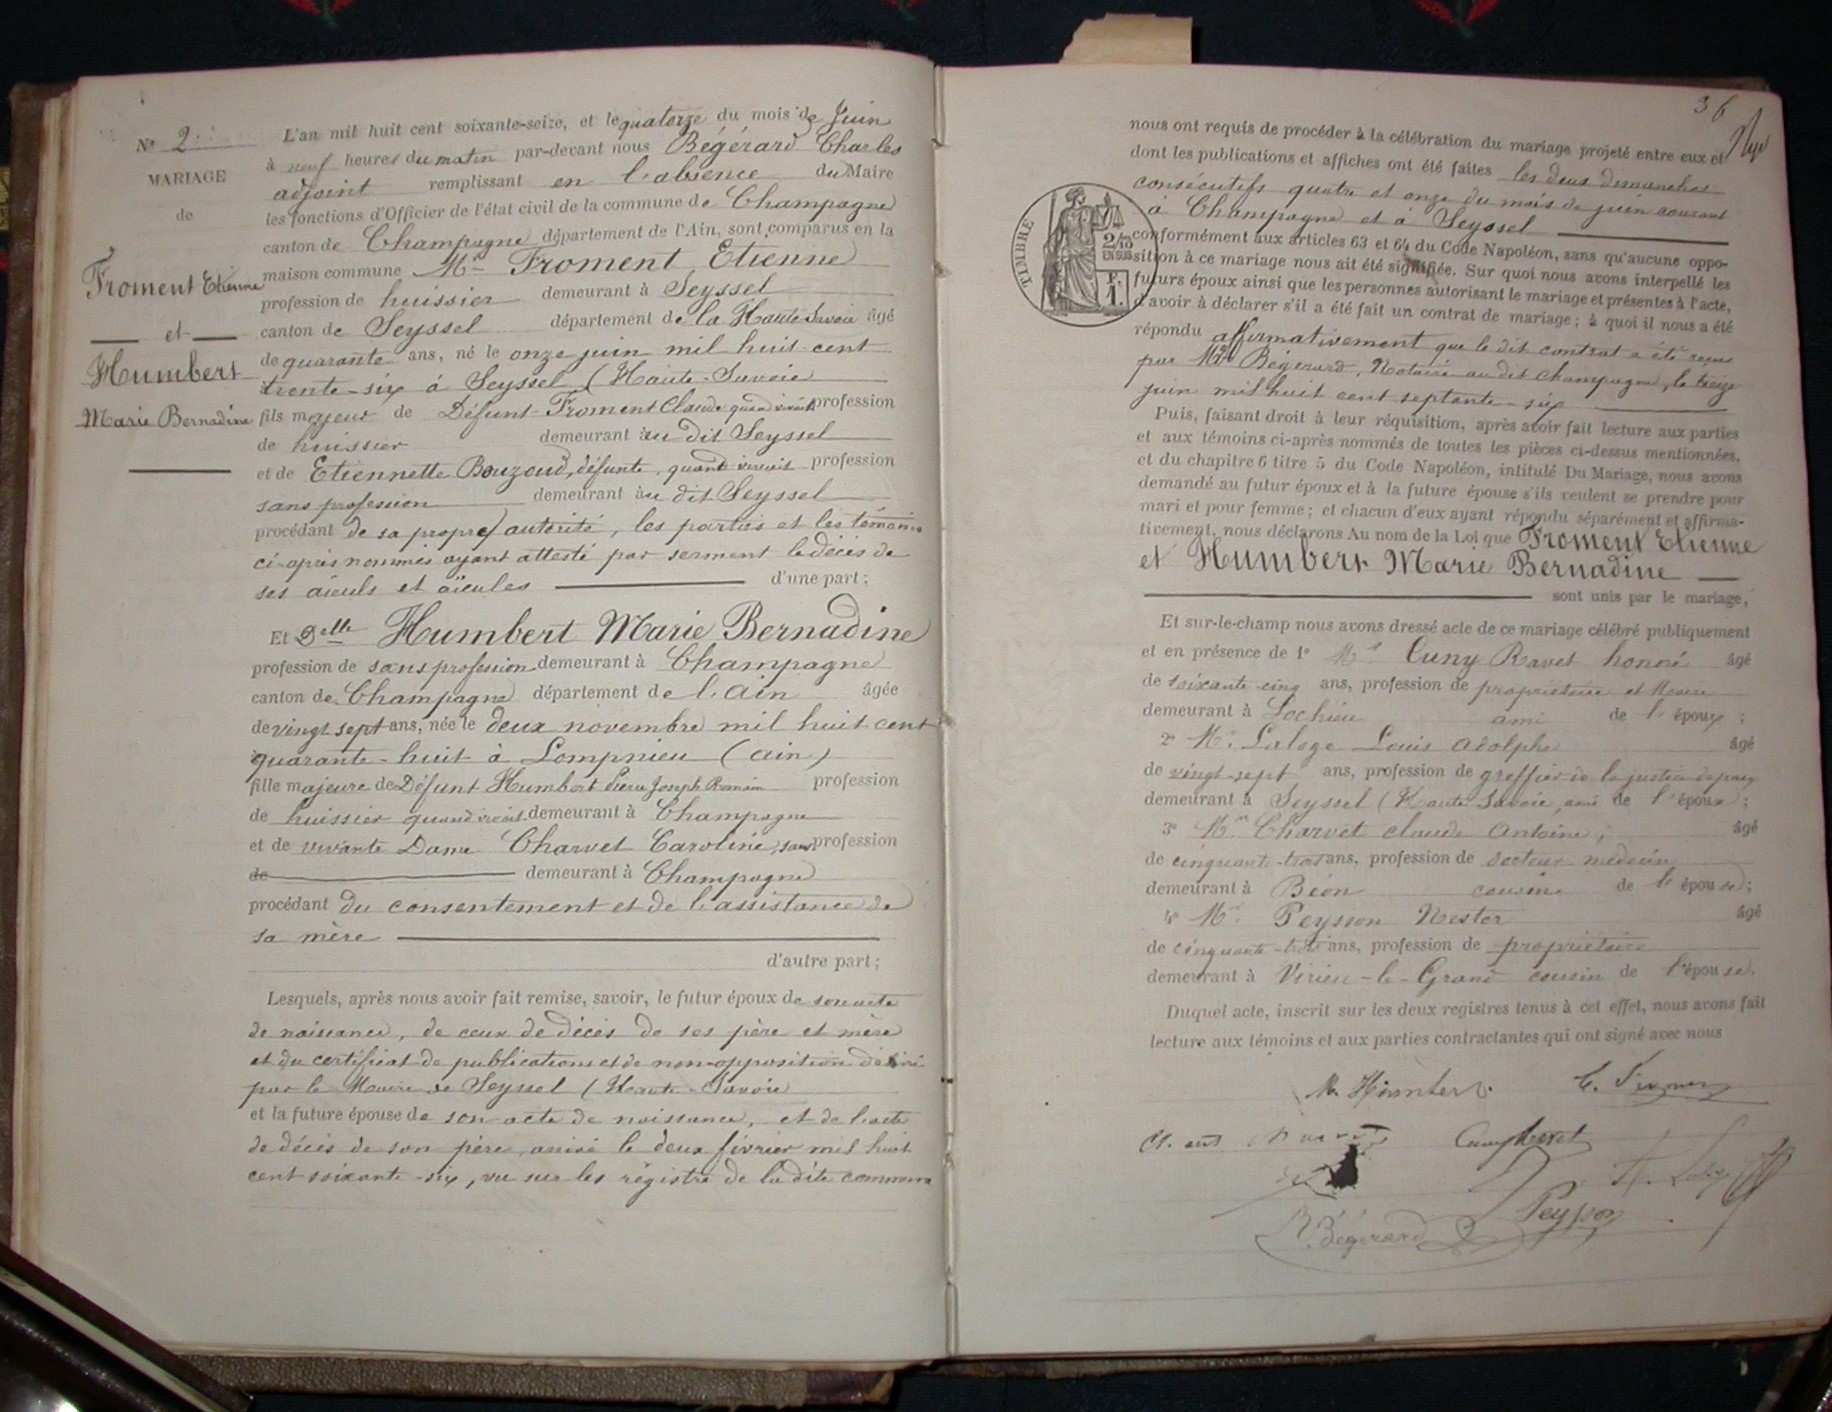 N° 2
MARIAGE
de
Froment Etienne
et
Humbert
Marie Bernadine
L'an mil huit cent soixante-seize, et le quatorze du mois de Juin
à neuf heures du matin par-devant nous Bégérard Charles
adjoint remplissant en l'absence du Maire
les fonctions d'Officier de l'état civil de la commune de Champagne
canton de Champagne département de l'Ain, sont comparus en la
maison commune Mr Froment Etienne
profession de huissier demeurant à Seyssel
canton de Seyssel département de la Haute Savoie âgé
de quarante ans, né le onze juin mil huit cent
trente-six à Seyssel (Haute-Savoie
fils majeur de Défunt Froment Claude quand vivait profession
de huissier demeurant au dit Seyssel
et de Etiennette Bouzoud, défunte, quand vivait profession
sans profession demeurant au dit Seyssel
procédant de sa propre autorité, les parties et les témoins
ci-après nommés ayant attesté par serment le décès de
ses aïeuls et aïeules d'une part;
Et Delle Humbert Marie Bernadine
profession de sans profession demeurant à Champagne
canton de Champagne département de l'Ain âgée
de vingt sept ans, née le deux novembre mil huit cent
quarante-huit à Lompnieu (Ain)
fille majeure de Défunt Humbert Pierre Joseph Romain profession
de huissier quand vivait demeurant à Champagne
et de vivante Dame Charvet Caroline, sans profession
de demeurant à Champagne
procédant du consentement et de l'assistance de
sa mère
d'autre part;
Lesquels, après nous avoir fait remise, savoir, le futur époux de son acte
de naissance, de ceux de décès de ses père et mère
et du certificat de publications et de non-opposition délivré
par le Maire de Seyssel (Haute-Savoie
et la future épouse de son acte de naissance, et de l'acte
de décès de son père, arrivé le deux février mil huit
cent soixante-six, vu sur les régistre de la dite commune
36
nous ont requis de procéder à la célébration du mariage projeté entre eux et
dont les publications et affiches ont été faites les deux dimanches
consécutifs quatre et onze du mois de juin courant
à Champagne et à Seyssel
TIMBRE
2/10
EN SUS
F.
1.
conformément aux articles 63 et 64 du Code Napoléon, sans qu'aucune oppo-
sition à ce mariage nous ait été signifiée. Sur quoi nous avons interpellé les
futurs époux ainsi que les personnes autorisant le mariage et présentes à l'acte,
d'avoir à déclarer s'il a été fait un contrat de mariage; à quoi il nous a été
répondu affirmativement que le dit contrat a été reçu
par Me Bégérard, Notaire au dit Champagne, le treize
juin mil huit cent septante-six
Puis, faisant droit à leur réquisition, après avoir fait lecture aux parties
et aux témoins ci-après nommés de toutes les pièces ci-dessus mentionnées,
et du chapitre 6 titre 5 du Code Napoléon, intitulé Du Mariage, nous avons
demandé au futur époux et à la future épouse s'ils veulent se prendre pour
mari et pour femme; et chacun d'eux ayant répondu séparément et affirma-
tivement, nous déclarons Au nom de la Loi que Froment Etienne
et Humbert Marie Bernadine
sont unis par le mariage,
Et sur-le-champ nous avons dressé acte de ce mariage célébré publiquement
et en présence de 1° Mr Cuny Ravet honoré âgé
de soixante-cinq ans, profession de propriétaire et Maire
demeurant à Lochieu ami de l'époux;
2° Mr. Laloge Louis Adolphe âgé
de vingt-sept ans, profession de greffier de la justice de paix
demeurant à Seyssel (Haute Savoie, ami de l'époux;
3° Mr Charvet Claude Antoine; âgé
de cinquante-trois ans, profession de docteur médecin
demeurant à Béon cousin de l'épouse;
4° Mr. Peysson Nestor âgé
de cinquante-trois ans, profession de propriétaire
demeurant à Virieu-le-Grand cousin de l'épouse.
Duquel acte, inscrit sur les deux registres tenus à cet effet, nous avons fait
lecture aux témoins et aux parties contractantes qui ont signé avec nous
M. Humbert. E. Froment
Cuny Ravet
Peysson
Bégérard